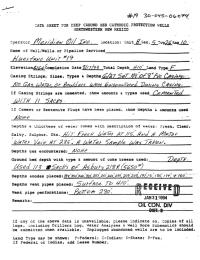 #19 30-045-06494
DATA SHEET FOR DEEP GROUND BED CATHODIC PROTECTION WELLS
NORTHWESTERN NEW MEXICO
Operator Meridian Oil Inc. Location: Unit Sec. Twp Rng
Name of Well/Wells or Pipeline Serviced
Huerfano Unit #19
Elevation Completion Date Total Depth 410' Land Type F
Casing Strings, Sizes, Types & Depths
No Gas, Water, or Boulders Were Encountered During Casing.
If Casing Strings are cemented, show amounts & types used Cemented
With 11 Sacks
If Cement or Bentonite Plugs have been placed, show depths & amounts used
None
Depths & thickness of water zones with description of water: Fresh, Clear,
Salty, Sulphur, Etc. Hit Fresh Water At 115' And A
Water Sample Was Taken.
Depths gas encountered: None
Ground bed depth with type & amount of coke breeze used: Depth
Used 113 Sacks of Asbury 218R (5650#)
Depths anodes placed:
Depths vent pipes placed: Surface To 410'
Vent pipe perforations: Bottom 290' RECEIVED
Remarks: JAN 31 1994
OIL CON. DIV
DIST. 3
If any of the above data is unavailable, please indicate so. Copies of all
logs, including Drillers Log, Water Analyses & Well Bore Schematics should
be submitted when available. Unplugged abandoned wells are to be included.
Land Type may be shown: F-Federal; I-Indian; S-State; P-Fee.
If Federal or Indian, add Lease Number.